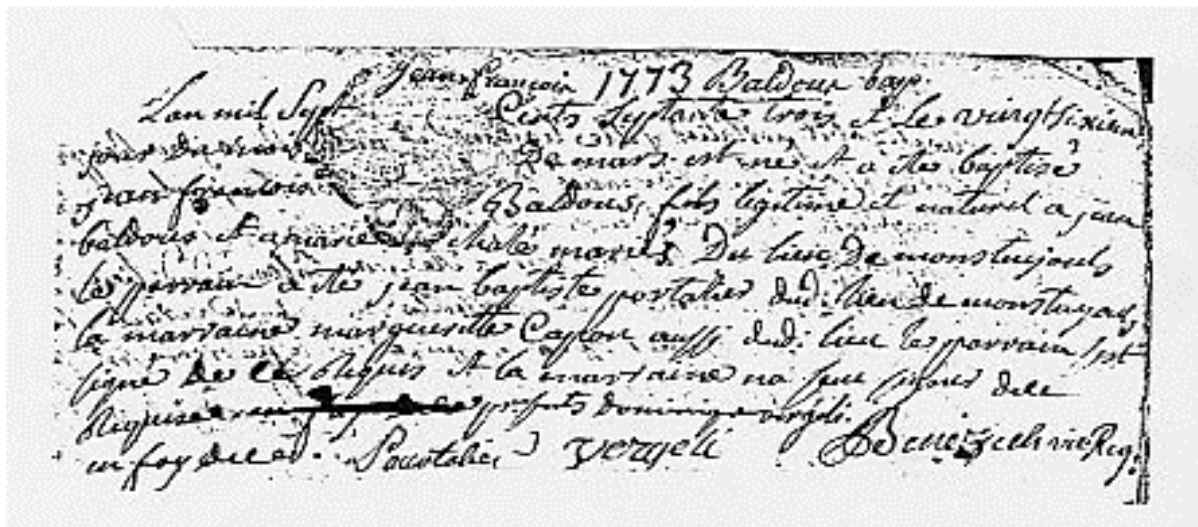 Jean françois 1773 Baldous bap.
Lan mil Sept Cents Septante trois et Le vingt sixieme
jour du mois De mars est né et a ète baptisé
jean francois Baldous, fils legitime et naturel a jean
baldous et a marie mariés Du lieu De monstuejouls
le parrain a ète jean baptiste portalier dud. lieu de monstuejouls
la marraine marguerite aussi dud. lieu le parrain sest
signé de ce Requis et la marraine na seu signer de ce
Requise presents dominique vergeli.
en foy de ce Pourtalier Vergeli